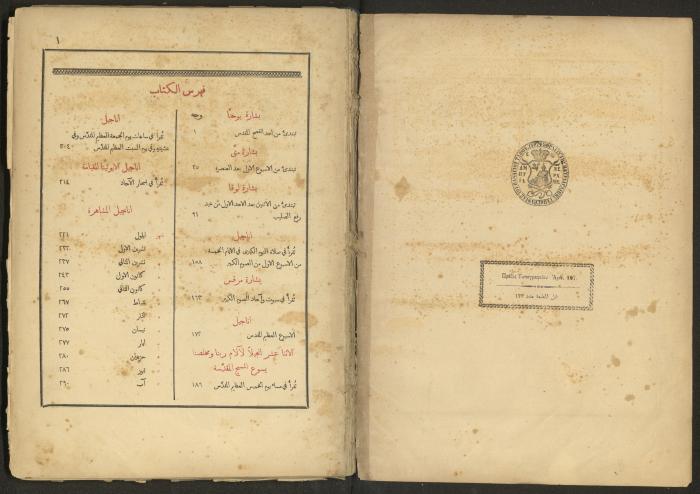 ١
فهرس الكتاب
وجه
بشارة يوحنا
تبتدئ من احد الفصح المقدس ١
بشارة متى
تبتدئ من الاسبوع الاول بعد العنصرة ٢٥
بشارة لوقا
تبتدئ من الاثنين بعد الاحد الاول من عيد
رفع الصليب ٩١
اناجيل
تقرأ في صلاة النوم الكبرى في الايام الخمسة
من الاسبوع الاول من الصوم الكبير ١٥٨
بشارة مرقس
تقرأ في سبوت وآحاد الصوم الكبير ١٦٣
اناجيل
الاسبوع العظيم المقدس ١٧٢
الاثنا عشر انجيلاً لآلام ربنا ومخلصنا
يسوع المسيح المقدسة
تقرأ في مساء يوم الخميس العظيم المقدس ١٨٦
اناجيل
تقرأ في ساعات يوم الجمعة العظيم المقدس وفي
عشيته وفي يوم السبت العظيم المقدس ٢٠٤
اناجيل الايوثينا للقيامة
تقرأ في اسحار الآحاد ٢١٤
اناجيل المشاهرة
ايلول ٢٢١
تشرين الاول ٢٣٢
تشرين الثاني ٢٣٧
كانون الاول ٢٤٣
كانون الثاني ٢٥٥
شباط ٢٦٧
اذار ٢٧٢
نيسان ٢٧٥
ايار ٢٧٧
حزيران ٢٨٠
تموز ٢٨٦
آب ٢٩٠